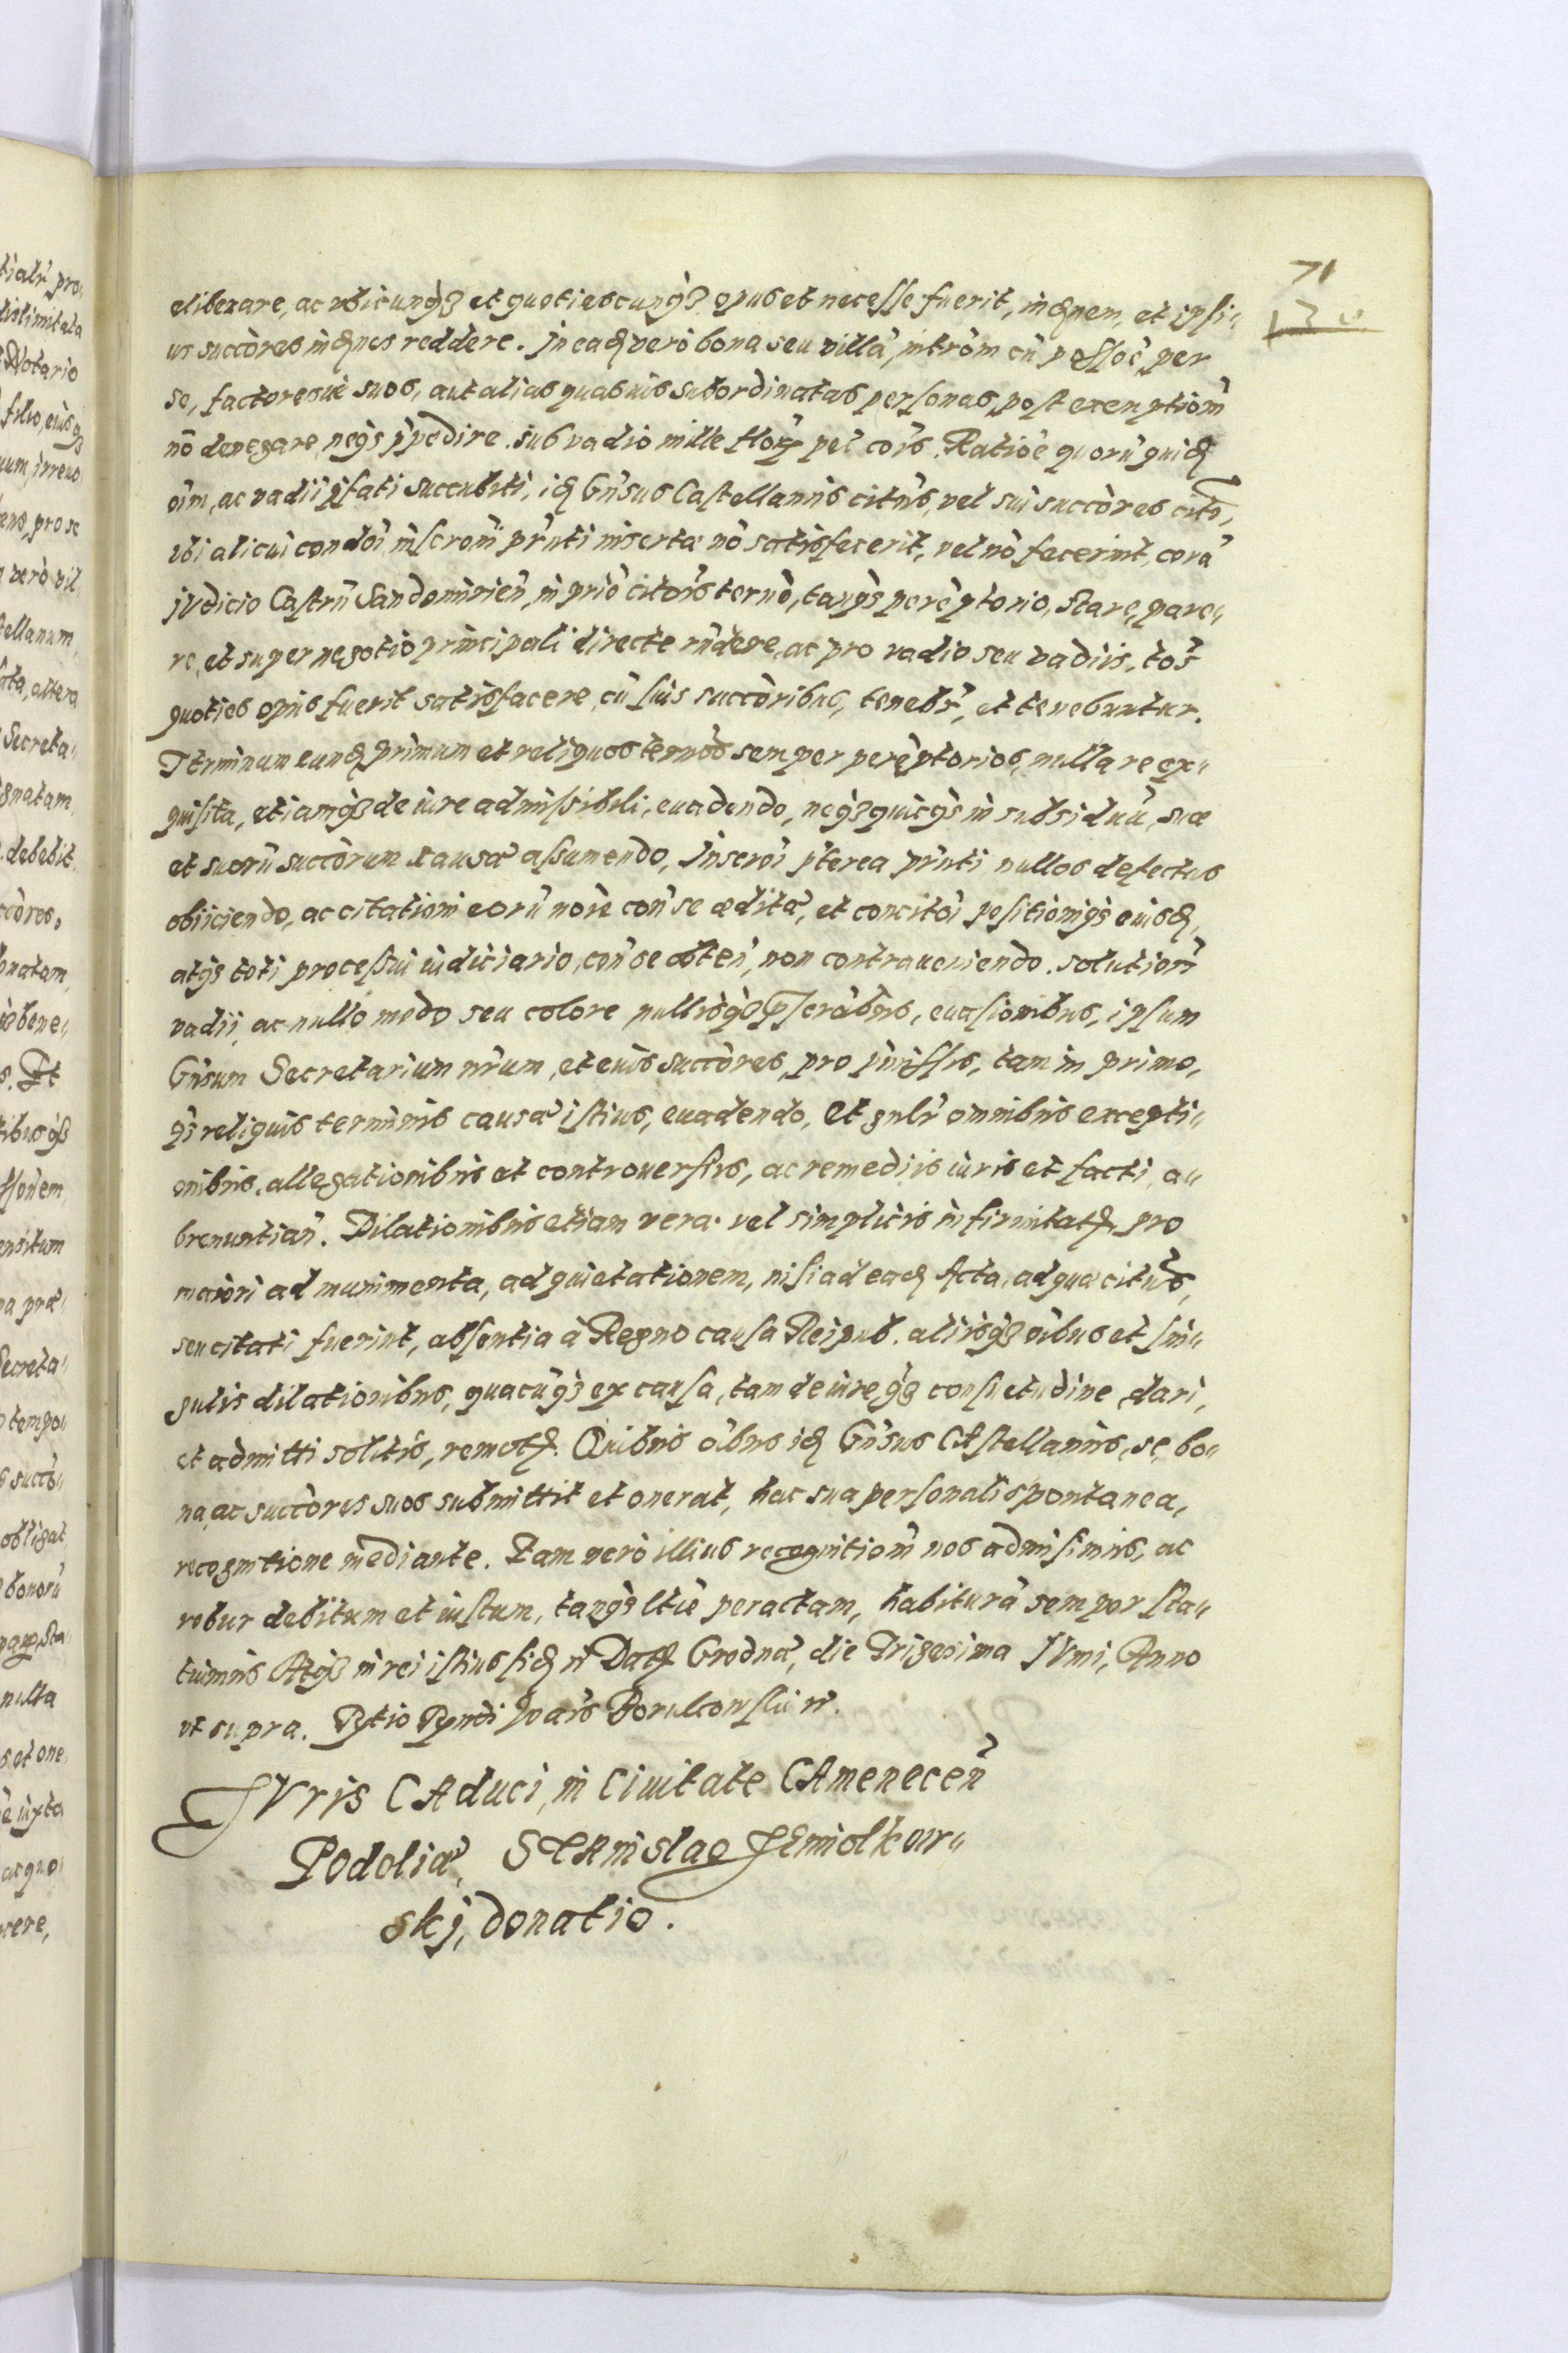 71
eliberare, ac ubicunqꝫ et quotiescunqꝫ opus et necesse fuerit, indemnem, et ipsi„
us succòres indemnes reddere. In eadem verò bona seu villã, intròm cũ possoẽ, per
se, factoresuè suos, aut alias quasuis subordinatas personas, post exemptiom̃
nõ denegare, neqꝫ ꝑpedire, sub vadio mille flor. pol. cõis. Ratiõe quorũ quidem
oĩm, ac vadij pfati succubiti, idem Gñsus Castellanus citũs, vel sui succòres citĩ,
ubi alicui condõi inscrõni pñti insertæ nõ satisfecerit, vel nõ fecerint, corã
iudicio Castrñ Sandomirieñ, in priõ citõis termõ, tanqꝫ perẽptorio, stare, pare„
re, et super negotio principali directe rñdere, ac pro vadio seu vadiis, toš
quoties opus fuerit satisfacere, cũ suis succòribus, tenebr̃, et tenebuntur.
Terminum eundem primum et reliquos termõs semper perẽptorios, nulla re ex„
quisita, etiamqꝫ de iure admissibili, euadendo, neqꝫ quicqꝫ in subsidiũ, suæ
et suorũ succòrum causæ assumendo, Inscrõi pterea pñti nullos defectus
obiiciendo, ac citationi eorũ noïe coñ se æditæ, et concitõi positioniqꝫ eiusdem,
atqꝫ toti processui iudiciario, coñ se obteñ, non contraueniendo. Solutiom̃
vadij, ac nullo modo seu colore nullisqꝫ euasionibus, ipsum
Gñsum Secretarium nr̃um, et eius succòres, pro pmissis, tam in primo,
qꝫ reliquis terminis causæ istius, euadendo, Et gnlr̃ omnibus excepti„
onibus, allegationibus et controuersiis, ac remediis iuris et facti, a„
brenuntiañ. Dilationibus etiam vera vel simplicis infirmitatem, pro
maiori ad munimenta, ad quietationem, nisi ad eadem Acta, ad quæ citũs,
seu citati fuerint, absentia à Regno causa Reipub. aliisqꝫ oĩbus et sin„
gulis dilationibus, quacũqꝫ ex causa, tam de iure, qꝫ consuetudine dari,
et admitti solitis, remotem. Quibus oĩbus idem Gñsus CAstellanus, se, bo„
na, ac succòres suos submittit et onerat, hac sua personali spontanea,
recognitione mediante. Eam verò illius recognitiom̃ nos admisimus, ac
robur debitum et iustum, tanqꝫ ltiẽ peractam, habiturã semper sta„
tuimus Atqꝫ in rei istius fidem rc̃ Datem Grodnæ, die Trigesima IUnii, Anno
vt supra.
IVris CAduci, in Ciuitate CAmeneceñ
Podoliæ, STAnislao JEmiołkow„
skj, donatio.